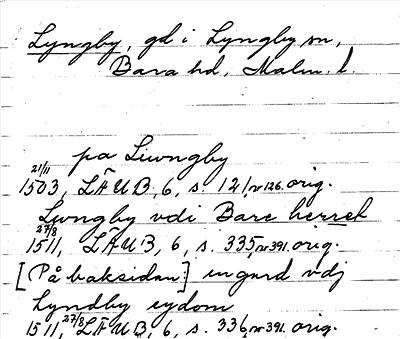 Lyngby, gd i Lyngby sn,
Bara hd, Malm. l.
pa Liwngby
21/11 1503, LÄUB, 6, s. 121, nr 126. orig.
Lwngby vdi Bare herret
27/8 1511, LÄUB, 6, s. 335, nr 391. orig.
[På baksidan] en gard vdj
Lyndby eydom
27/8 1511, LÄUB, 6, s. 336, nr 391. orig.